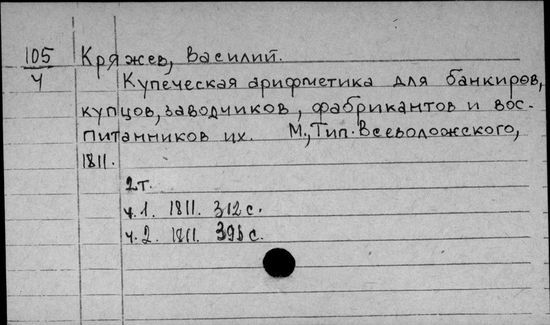 105 Кряжев, Василий.
4 Купеческая арифметика для банкиров,
купцов, заводчиков, фабрикантов и вос-
питанников их. М., Тип. Всеволожского,
1811.
2 т.
ч. 1. 1811. 312 с.
ч. 2. 1811. с.